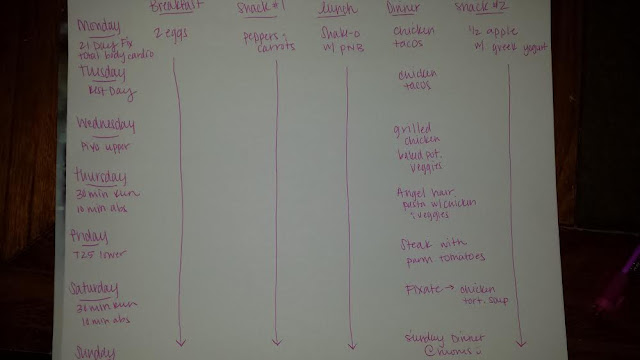 Breakfast Snack #1 Lunch Dinner Snack #2
Monday
21 Day Fix
total body cardio
2 eggs
peppers &
carrots
Shak-o
w/ PNB
chicken
tacos
1/2 apple
w/ greek yogurt
Tuesday
Rest Day
chicken
tacos
Wednesday
PiYo upper
grilled
chicken
baked pot.
veggies
Thursday
30 min run
10 min abs
Angel hair
pasta w/ chicken
& veggies
Friday
T25 lower
Steak with
parm tomatoes
Saturday
30 min run
10 min abs
Fixate → chicken
tort. soup
Sunday
Sunday Dinner
@ moms :)